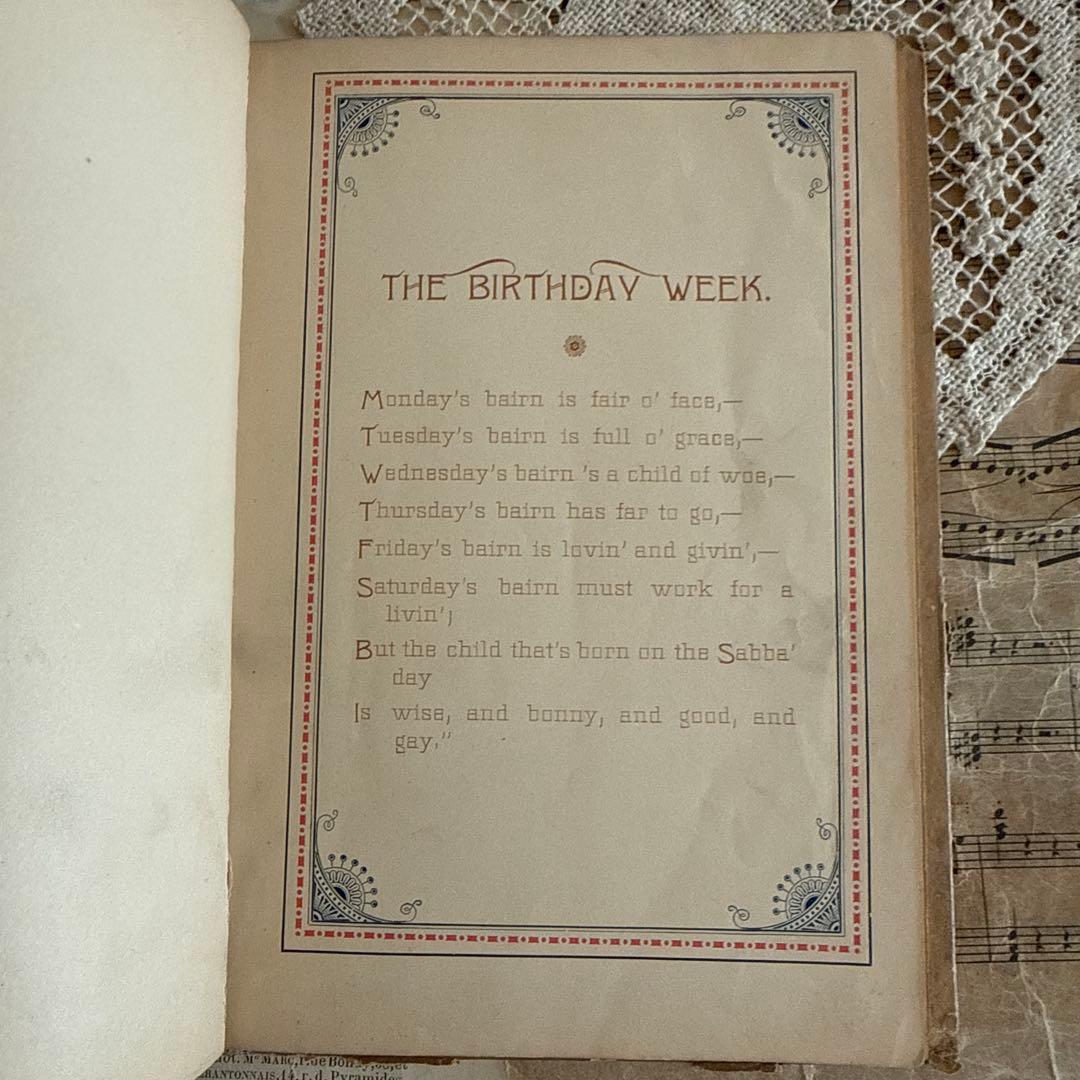 THE BIRTHDAY WEEK.
Monday's bairn is fair o' face,—
Tuesday's bairn is full o' grace,—
Wednesday's bairn 's a child of woe,—
Thursday's bairn has far to go,—
Friday's bairn is lovin' and givin',—
Saturday's bairn must work for a
livin';
But the child that's born on the Sabba'
day
Is wise, and bonny, and good, and
gay."
r. d. Pyramides